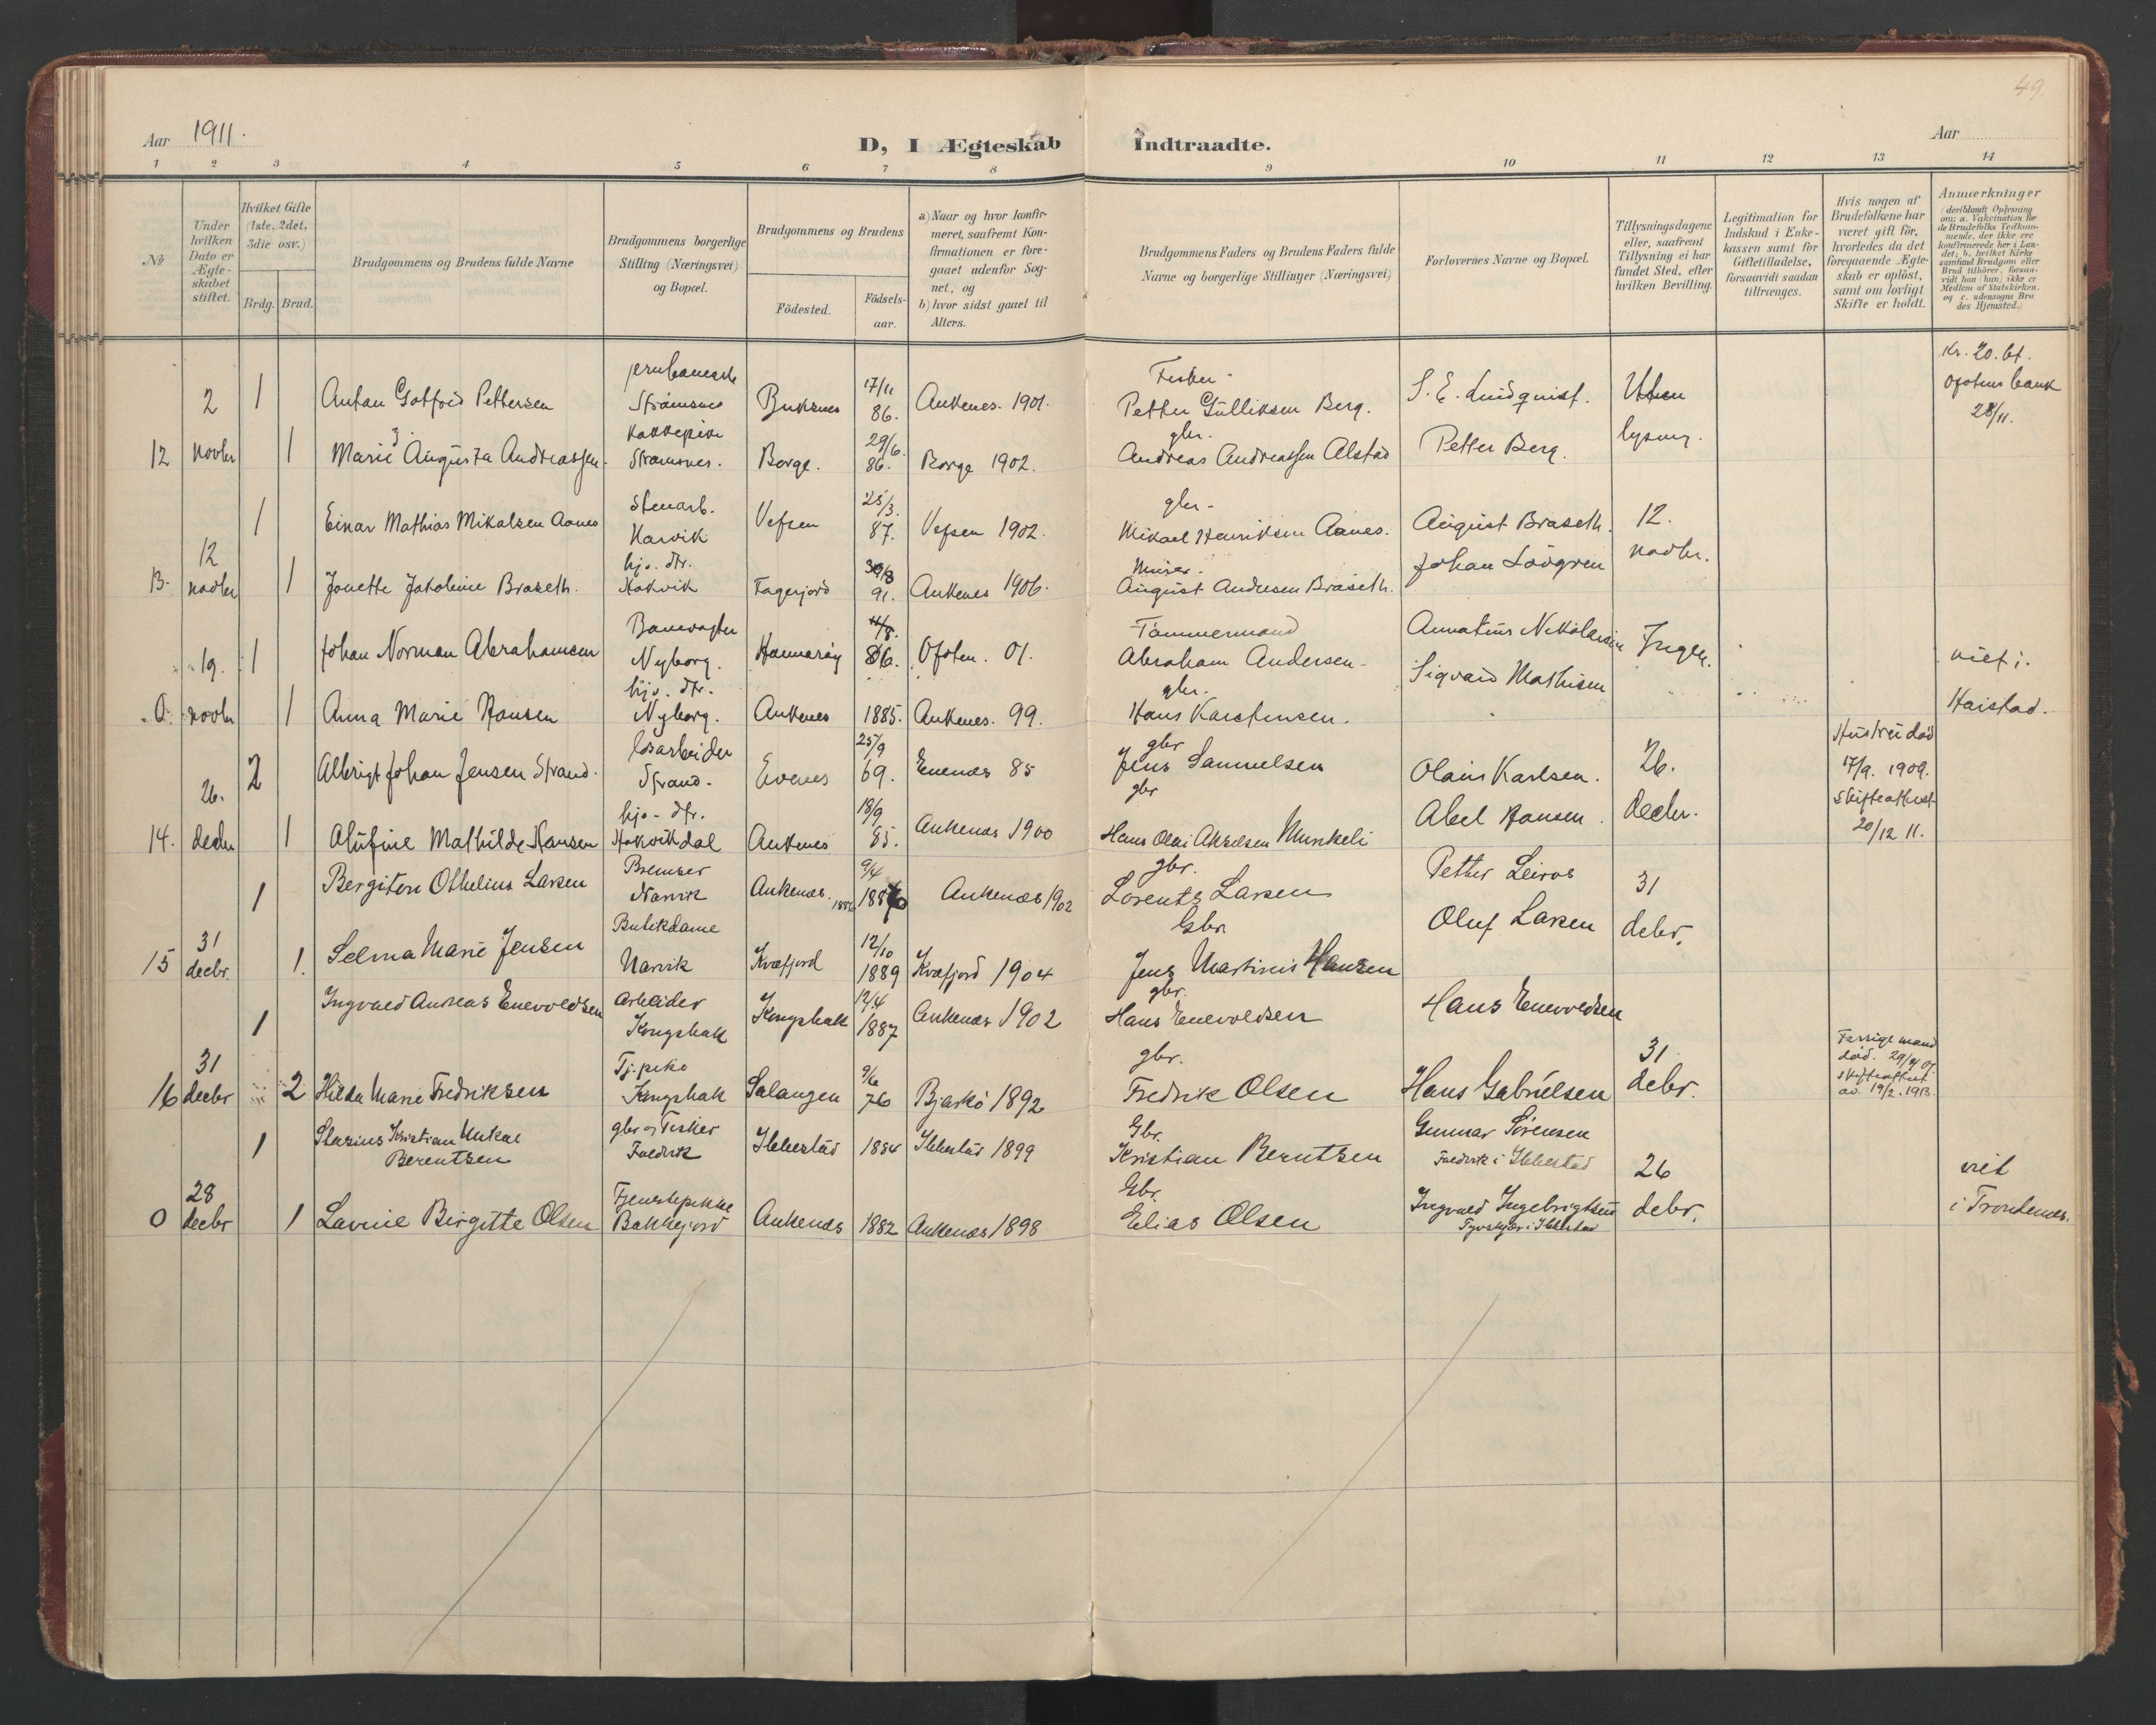 49.
Aar 1911.
D, I Ægteskab Indtraadte.
Aar
1 2 3 4 5 6 7 8 9 10 11 12 13 14
No
Under hvilken Dato er Ægteskabet stiftet.
Hvilket Gifte (1ste, 2det, 3die osv.)
Brdg. Brud.
Brudgommens og Brudens fulde Navne
Brudgommens borgerlige Stilling (Næringsvei) og Bopæl.
Brudgommens og Brudens
Födested.
Födselsaar.
a) Naar og hvor konfirmeret, saafremt Konfirmationen er foregaaet udenfor Sognet, og
b) hvor sidst gaaet til Alters.
Brudgommens Faders og Brudens Faders fulde Navne og borgerlige Stillinger (Næringsvei)
Forlovernes Navne og Bopæl.
Tillysningsdagene eller, saafremt Tillysning ei har fundet Sted, efter hvilken Bevilling.
Legitimation for Indskud i Enkekassen samt for Giftetilladelse, forsaavidt saadan tiltrænges.
Hvis nogen af Brudefolkene har været gift för, hvorledes da det foregaaende Ægteskab er oplöst, samt om lovligt Skifte er holdt.
Anmerkninger
(deriblandt Oplysning om: a. Vakcination for de Brudefolks Vedkommende, der ikke ere konfirmerede her i Landet; b. hvilket Kirkesamfund Brudgom eller Brud tilhörer, forsaavidt han (hun) ikke er Medlem af Statskirken, og c. udensogns Brudes Hjemsted.)
Fisker
Kr. 20. bt.
2 1 Anton Gotfrid Pettersen Strømsnes Buksnes 17/11 86. Ankenes. 1901. Petter Gulliksen Berg. S. E. Lindquist. Uten Ofotens bank 28/11.
Kokkepike gbr.
12 novbr 1 Marie Augusta Andreassen. Strømsnes. Borge. 29/6. 86. Borge 1902. Andreas Andreassen Alstad Petter Berg. lysning.
Stenarb. gbr.
1 Einar Mathias Mikalsen Aanes Narvik Vefsen 25/3. 87. Vefsen 1902. Mikael Henriksen Aanes. August Braseth. 12.
12 hjv. dtr. Murer.
13. novbr 1 Jonette Jakobine Braseth. Hakvik Fagerjord 30/8 91. Ankenes 1906. August Andersen Braseth. Johan Lövgren novbr.
Banevogter Tömmermand
19. 1 Johan Norman Abrahamsen Nyborg. Hammarøy 86. Ofoten. 01. Abraham Andersen. Sigvard Mathisen Ingen. viet i
hjv. dtr. gbr.
0. novbr 1 Anna Marie Hansen Nyborg. Ankenes 1885. Ankenes. 99. Hans Karstensen. Harstad.
gbr Hustru död
26. 2 Albrigt Johan Jensen Strand. Strand. Evenes 25/9 69. Evenes 85 Jens Samuelsen Olais Karlsen. 26. 17/9. 1909.
hjv. dtr. gbr Skifteattest
14. decbr 1 Alufine Mathilde Hansen Hakvikdal Ankenes 18/9 85. Ankenes 1900 Hans Olai Akselsen Munkeli Abel Hansen. decbr. 20/12 11.
Bremser gbr.
1 Bergiton Othelius Larsen Narvik Ankenes. 1886 9/4 Ankenes 1902 Lorents Larsen Petter Leiros 31
31 Butikdame Gbr.
15 decbr. 1. Selma Marie Jensen Narvik Kvæfjord 12/10 1889 Kvæfjord 1904 Jens Martinus Hansen Oluf Larsen debr.
Arbeider gbr.
1 Ingvald Andreas Enevoldsen Kongsbak Kongsbak 12/4 1887 Ankenes 1902 Hans Enevoldsen Hans Enevoldsen
31 Tj.pike gbr. 31 Forrige mand död.
16 decbr 2 Hilda Marie Fredriksen Kongsbak Salangen 9/6 76 Bjarkö 1892 Fredrik Olsen Hans Gabrielsen debr. Skifteattest av. 19/2. 1913.
gbr og Fisker Gbr. Gunnar Sörensen
1 Kristian Mikal Berentsen Ibbestad 1884 Ibbestad 1899 Kristian Berntsen i Ibbestad 26 viet
28 Tjenstepikke Gbr.
0 decbr 1 Lavine Birgitte Olsen Bakkejord Ankenes 1882 Ankenes 1898 Elias Olsen Ingvald Ingebrigtsen i Ibbestad debr. i Trondenes.